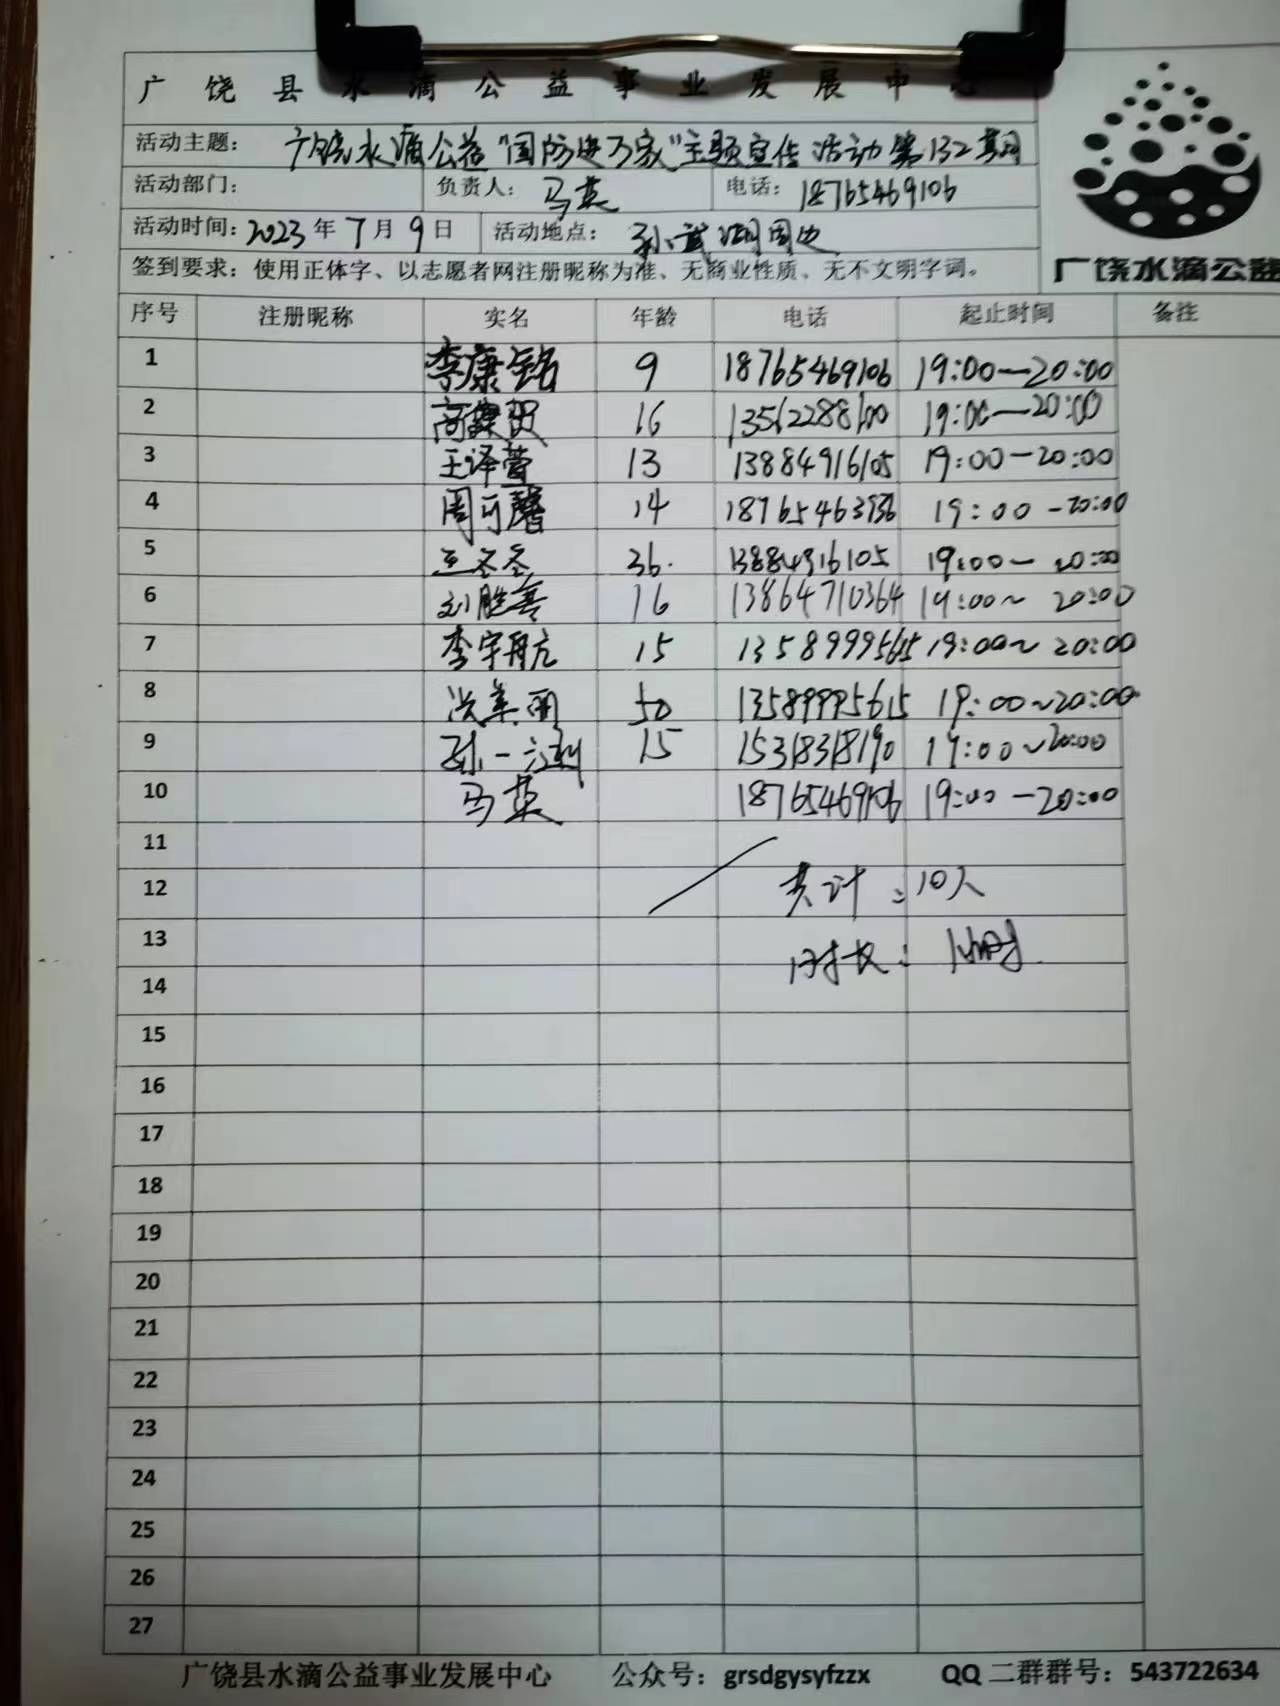 广饶县水滴公益事业发展中心
活动主题： 广饶水滴公益"国防进万家"主题宣传活动第132期
活动部门： 负责人：马英 电话：18765469106
活动时间：2023年7月9日 活动地点：孙武湖周边
签到要求：使用正体字、以志愿者网注册昵称为准、无商业性质、无不文明字词。
广饶水滴公益
序号 注册昵称 实名 年龄 电话 起止时间 备注
1 李康铭 9 18765469106 19:00—20:00
2 高 贺 16 13562288100 19:00—20:00
3 王泽萱 13 13884916105 19:00—20:00
4 周可馨 14 19:00-20:00
5 王冬冬 36. 13884916105 19:00— 20:00
6 刘胜善 16 13864710364 19:00~ 20:00
7 李宇航 15 19:00~ 20:00
8 洪美丽 50 13589995615 19:00~20:00
9 孙一 15 15318318190 19:00~20:00
10 马英 18765469106 19:00—20:00
11
12 共计：10人
13 时长：1小时
14
15
16
17
18
19
20
21
22
23
24
25
26
27
广饶县水滴公益事业发展中心 公众号：grsdgysyfzzx QQ二群群号：543722634